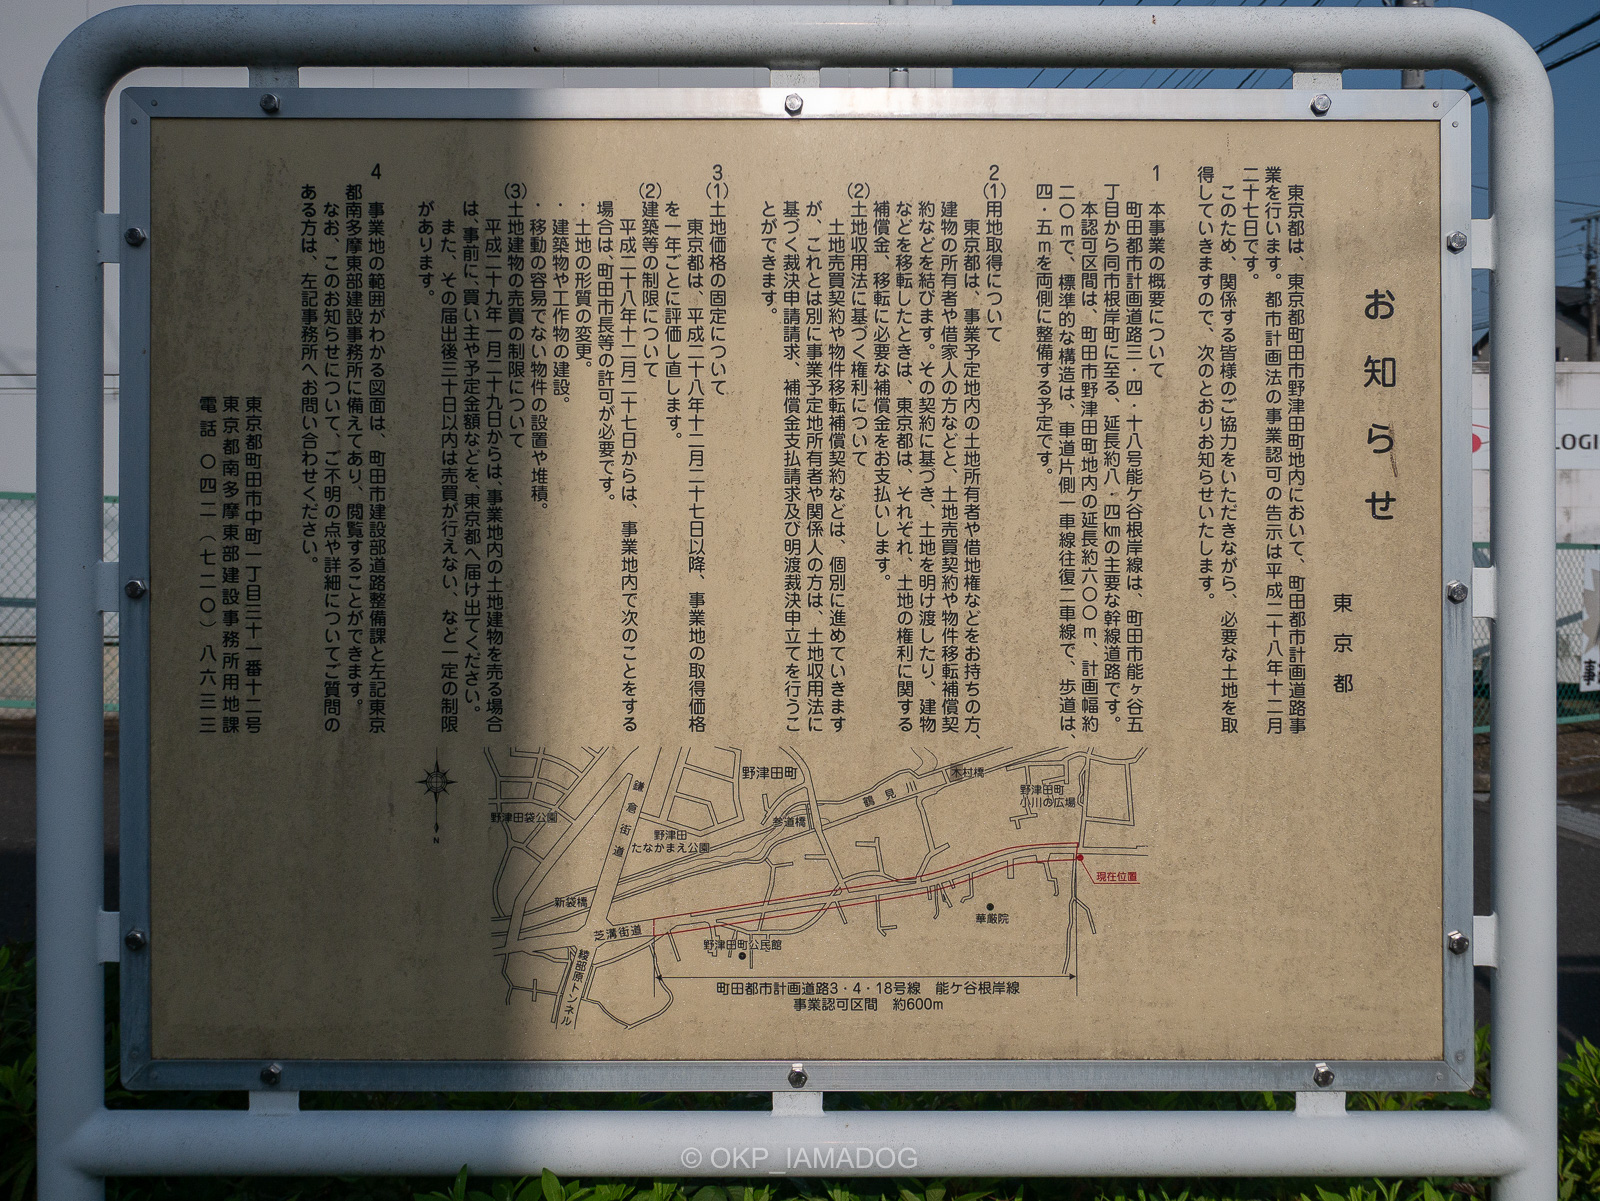 お知らせ
東京都
東京都は、東京都町田市野津田町地内において、町田都市計画道路事
業を行います。都市計画法の事業認可の告示は平成二十八年十二月
二十七日です。
このため、関係する皆様のご協力をいただきながら、必要な土地を取
得していきますので、次のとおりお知らせいたします。
1 本事業の概要について
町田都市計画道路三・四・十八号能ケ谷根岸線は、町田市能ヶ谷五
丁目から同市根岸町に至る、延長約八・四kmの主要な幹線道路です。
本認可区間は、町田市野津田町地内の延長約六〇〇m、計画幅約
二〇mで、標準的な構造は、車道片側一車線往復二車線で、歩道は、
四・五mを両側に整備する予定です。
2
(1)用地取得について
東京都は、事業予定地内の土地所有者や借地権などをお持ちの方、
建物の所有者や借家人の方などと、土地売買契約や物件移転補償契
約などを結びます。その契約に基づき、土地を明け渡したり、建物
などを移転したときは、東京都は、それぞれ、土地の権利に関する
補償金、移転に必要な補償金をお支払いします。
(2)土地収用法に基づく権利について
土地売買契約や物件移転補償契約などは、個別に進めていきます
が、これとは別に事業予定地所有者や関係人の方は、土地収用法に
基づく裁決申請請求、補償金支払請求及び明渡裁決申立てを行うこ
とができます。
3
(1)土地価格の固定について
東京都は、平成二十八年十二月二十七日以降、事業地の取得価格
を一年ごとに評価し直します。
(2)建築等の制限について
平成二十八年十二月二十七日からは、事業地内で次のことをする
場合は、町田市長等の許可が必要です。
・土地の形質の変更。
・建築物や工作物の建設。
・移動の容易でない物件の設置や堆積。
(3)土地建物の売買の制限について
平成二十九年一月二十九日からは、事業地内の土地建物を売る場合
は、事前に、買い主や予定金額などを、東京都へ届け出てください。
また、その届出後三十日以内は売買が行えない、など一定の制限
があります。
4 事業地の範囲がわかる図面は、町田市建設部道路整備課と左記東京
都南多摩東部建設事務所に備えてあり、閲覧することができます。
なお、このお知らせについて、ご不明の点や詳細についてご質問の
ある方は、左記事務所へお問い合わせください。
東京都町田市中町一丁目三十一番十二号
東京都南多摩東部建設事務所用地課
電話 〇四二(七二〇)八六三三
野津田町
木村橋
鶴見川
野津田町
小川の広場
鎌倉街道
野津田袋公園
参道橋
野津田
たなかまえ公園
現在位置
新袋橋
華厳院
芝溝街道
野津田町公民館
綾部原トンネル
N
町田都市計画道路3・4・18号線 能ケ谷根岸線
事業認可区間 約600m
LOGI
© OKP_IAMADOG